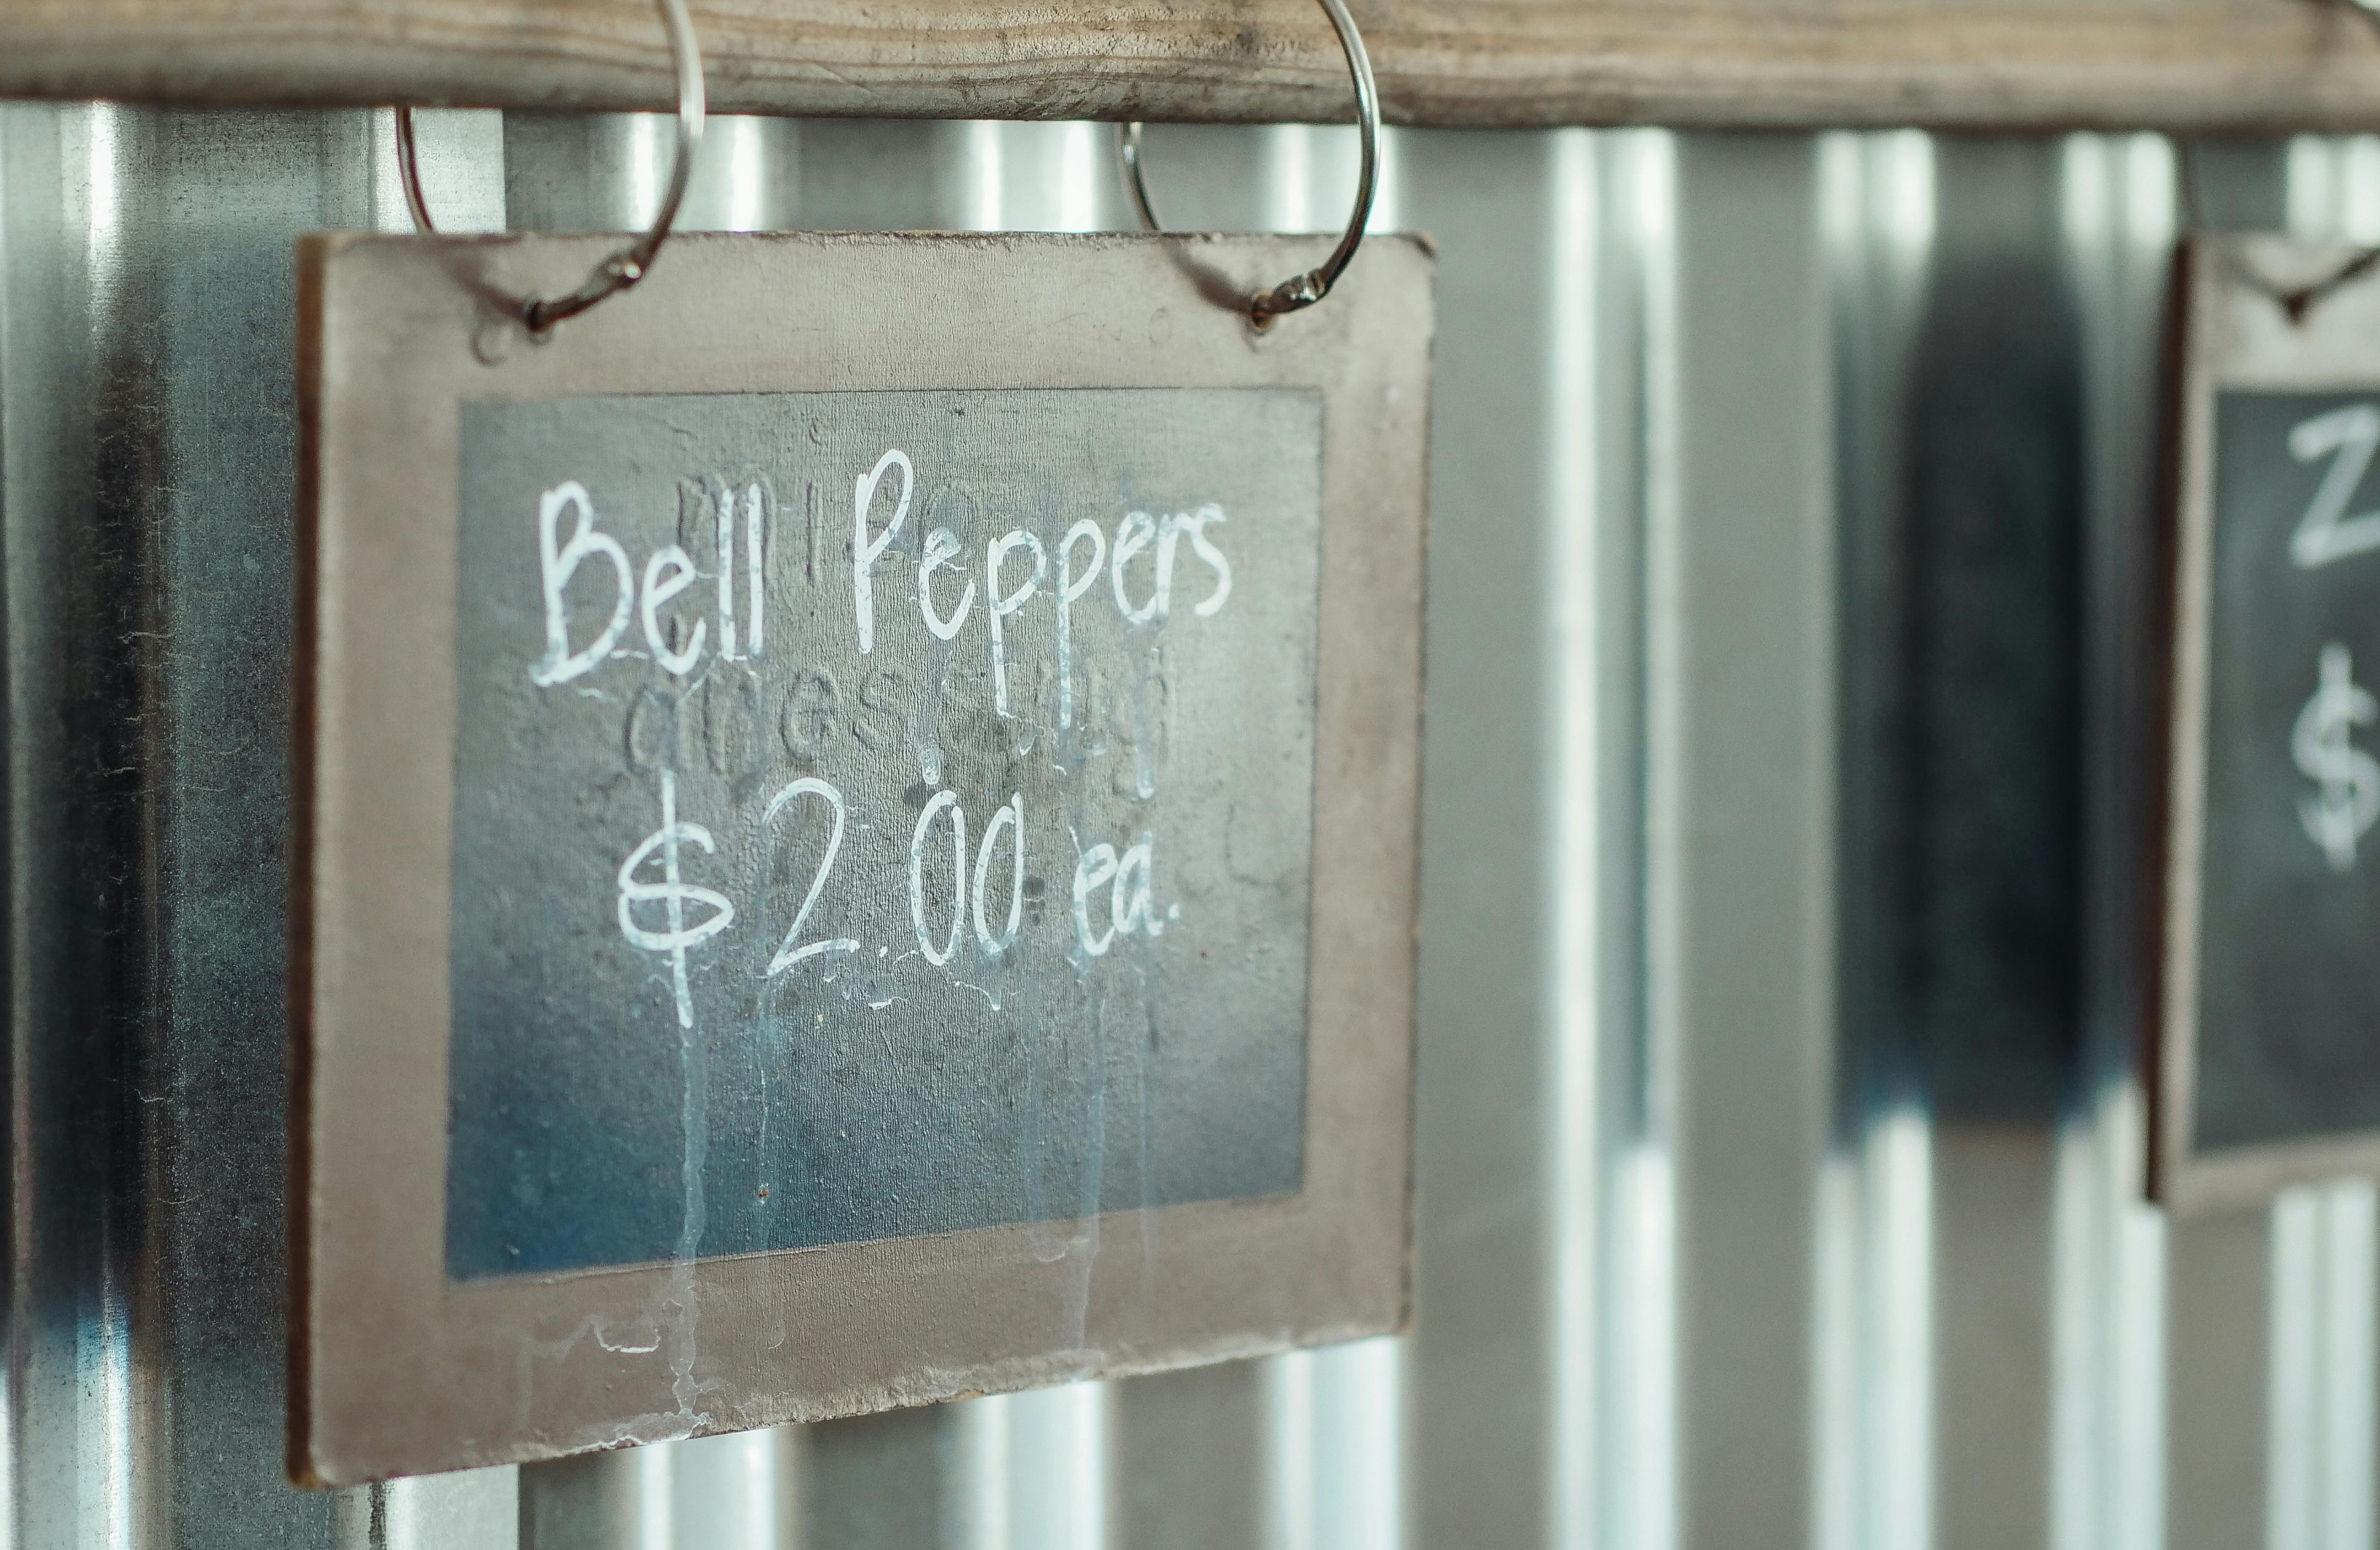 Bell Peppers
$2.00 ea.
Z
$